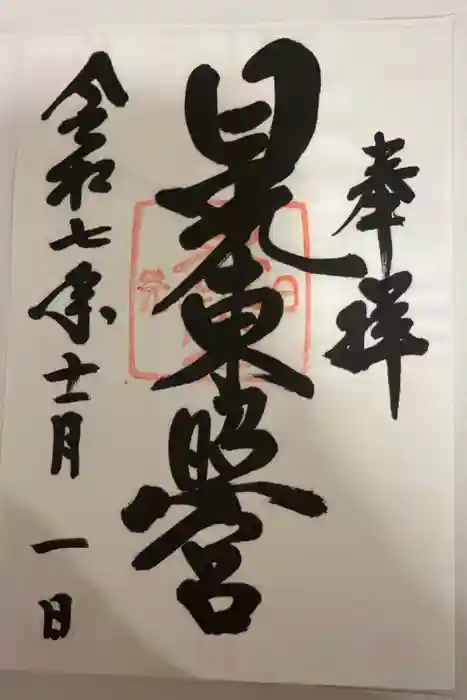 奉拝
日光東照宮
令和七年十一月 一日